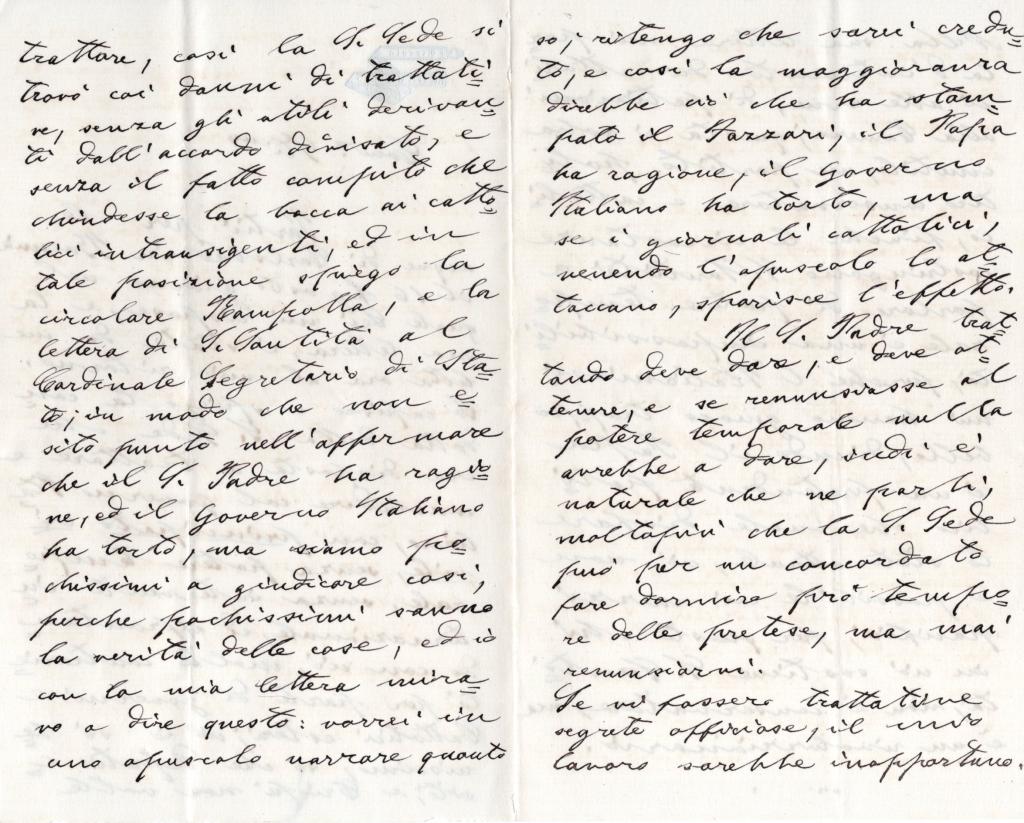 trattare, così la S. Sede si
trovò coi danni di trattati=
ve, senza gli utili derivan=
ti dall'accordo divisato, e
senza il fatto compito che
chiudesse la bocca ai catto=
lici intransigenti, ed in
tale posizione spiego la
circolare Rampolla, e la
lettera di S. Santità al
Cardinale Segretario di Sta=
to; in modo che non e=
sito punto nell'affermare
che il S. Padre ha ragio=
ne, ed il Governo Italiano
ha torto, ma siamo po=
chissimi a giudicare così,
perche pochissimi sanno
la verità delle cose, ed io
con la mia lettera mira=
vo a dire questo: vorrei in
uno opuscolo narrare quanto
so; ritengo che sarei credu=
to, e così la maggioranza
direbbe ciò che ha stam=
pato il Fazzari, il Papa
ha ragione, il Governo
Italiano ha torto, ma
se i giornali cattolici,
venendo l'opuscolo lo at=
taccano, sparisce l'effetto.
Il S. Padre trat=
tando deve dare, e deve ot=
tenere, e se renunsiasse al
potere temporale nulla
avrebbe a dare, quindi è
naturale che ne parli,
moltopiù che la S. Sede
può per un concordato
fare dormire prò tempo=
re delle pretese, ma mai
renunsiarvi.
Se vi fossero trattative
segrete officiose, il mio
lavoro sarebbe inopportuno.